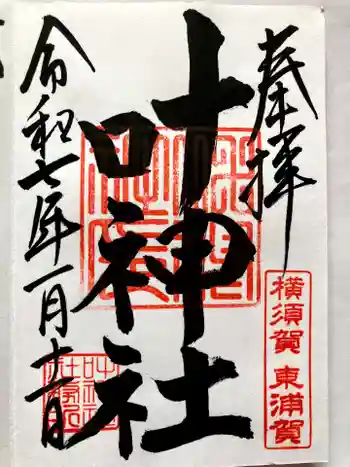 奉拝
叶神社
令和七年一月十一日
横須賀 東浦賀